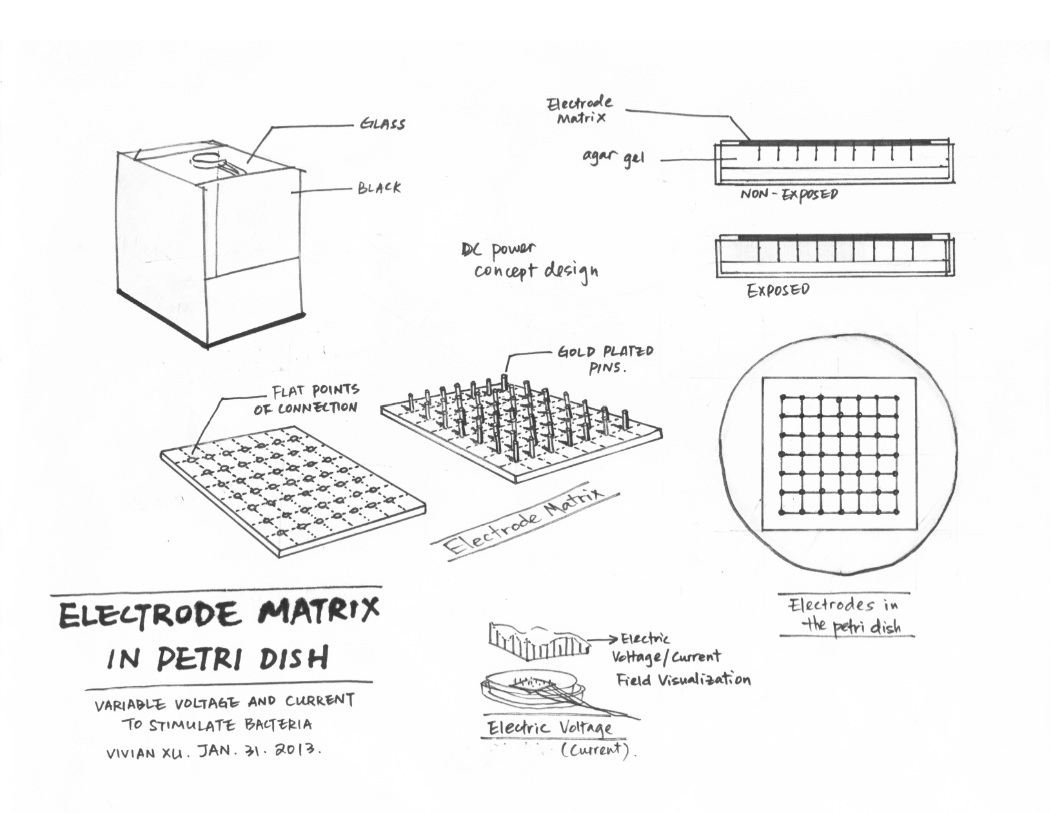 GLASS
BLACK
Electrode
Matrix
agar gel
NON-EXPOSED
DC power
concept design
EXPOSED
GOLD PLATED
PINS.
FLAT POINTS
OF CONNECTION
Electrode Matrix
ELECTRODE MATRIX
IN PETRI DISH
VARIABLE VOLTAGE AND CURRENT
TO STIMULATE BACTERIA
VIVIAN XU. JAN. 31. 2013.
Electric
Voltage/Current
Field Visualization
Electric Voltage
(Current).
Electrodes in
the petri dish